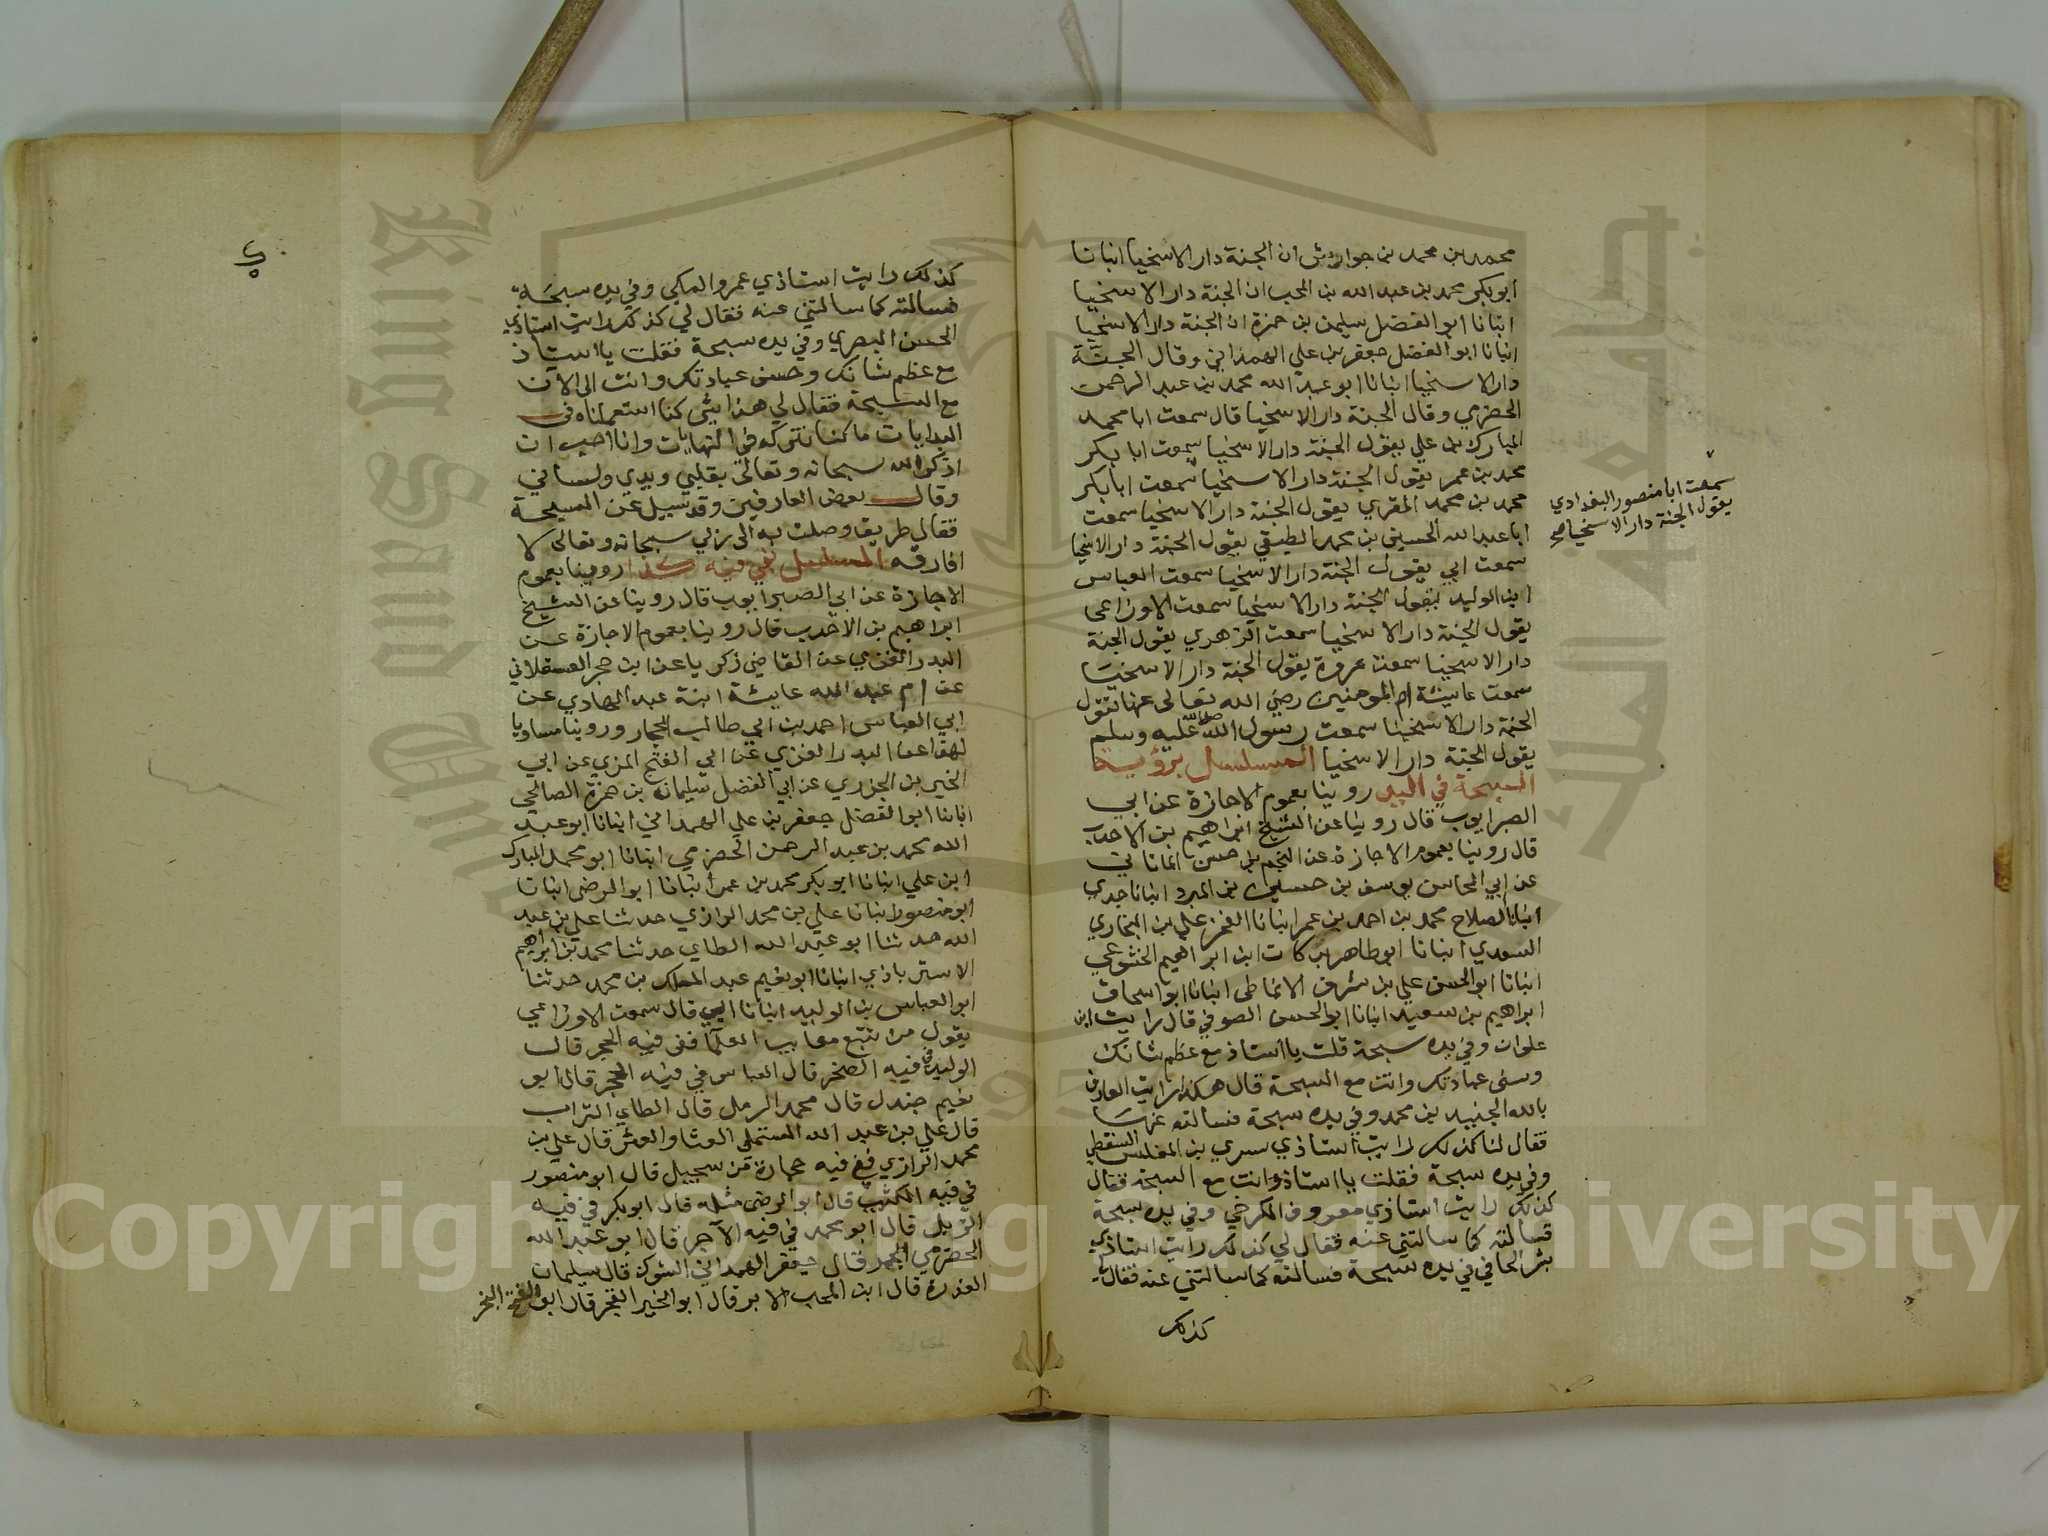 محمد بن محمد بن جوارش ان الجنة دار الاسخيا انبانا
ابو بكر محمد بن عبد الله بن المحب ان الجنة دار الاسخيا
انبانا ابو الفضل سليمن بن حمزة ان الجنة دار الاسخيا
انبانا ابو الفضل جعفر بن علي الهمداني وقال الجنة
دار الاسخيا انبانا ابو عبد الله محمد بن عبد الرحمن
الحضرمي وقال الجنة دار الاسخيا قال سمعت ابا محمد
المبارك بن علي يقول الجنة دار الاسخيا سمعت ابا بكر
محمد بن عمر يقول الجنة دار الاسخيا سمعت ابا بكر
محمد بن محمد المقري يقول الجنة دار الاسخيا سمعت
ابا عبد الله الحسين بن محمد الطبقي يقول الجنة دار الاسخيا
سمعت ابي يقول الجنة دار الاسخيا سمعت العباس
ابن الوليد يقول الجنة دار الاسخيا سمعت الاوزاعي
يقول الجنة دار الاسخيا سمعت الزهري يقول الجنة
دار الاسخيا سمعت عروة يقول الجنة دار الاسخيا
سمعت عايشة ام المومنين رضي الله تعالى عنها تقول
الجنة دار الاسخيا سمعت رسول الله صلى الله عليه وسلم
يقول الجنة دار الاسخيا المسلسل برؤية
السبحة في اليد روينا بعموم الاجازة عن ابي
الصبر ايوب قال روينا عن الشيخ ابراهيم بن الاحدب
قال روينا بعموم الاجازة عن النجم بن حسن الماتاني
عن ابي المحاسن يوسف بن حسين بن المبرد انبانا جدي
انبانا الصلاح محمد بن احمد بن عمر انبانا الفخر علي بن البخاري
السعدي انبانا ابو طاهر بركات ابن ابراهيم الخشوعي
انبانا ابو الحسن علي بن شرف الانماطي انبانا ابو اسحاق
ابراهيم بن سعيد انبانا ابو الحسن الصوفي قال رايت ابن
علوان وفي يده سبحة قلت يا استاذ مع عظم شانك
وسني عبادتك وانت مع السبحة قال هكذا رايت العارف
بالله الجنيد بن محمد وفي يده سبحة فسالته عنها
فقال لنا كذلك رايت استاذي سري بن المغلس السقطي
وفي يده سبحة فقلت يا استاذ وانت مع السبحة فقال
كذلك رايت استاذي معروف الكرخي وفي يده سبحة
فسالته كما سالتني عنه فقال لي كذلك رايت استاذي
بشر الحافي في يده سبحة فسالته كما سالتني عنه فقال لي
كذلك
سمعت ابا منصور البغدادي
يقول الجنة دار الاسخيا صح
كذلك رايت استاذي عمرو المكي وفي يده سبحة
فسالته كما سالتني عنه فقال لي كذلك رايت استاذي
الحسن البصري وفي يده سبحة فقلت يا استاذ
مع عظم شانك وحسن عبادتك وانت الى الآن
مع السبحة فقال لي هذا شي كنا استعملناه في
البدايات ما كنا نتركه في النهايات وانا احب ان
اذكر الله سبحانه وتعالى بقلبي ويدي ولساني
وقال بعض العارفين وقد سيل عن السبحة
فقال طريق وصلت به الى ربي سبحانه وتعالى لا
افارقه المسلسل بفي فيه كذا روينا بعموم
الاجازة عن ابي الصبر ايوب قال روينا عن الشيخ
ابراهيم بن الاحدب قال روينا بعموم الاجازة عن
البدر الغزي عن القاضي زكريا عن ابن حجر العسقلاني
عن ام عبد الله عايشة ابنة عبد الهادي عن
ابي العباس احمد بن ابي طالب الحجار وروينا مساويا
لهذا عن البدر الغزي عن ابي الفتح المزي عن ابي
الخير بن الجزري عن ابي الفضل سليمان بن حمزة الصالحي
انبانا ابو الفضل جعفر بن علي الهمداني انبانا ابو عبد
الله محمد بن عبد الرحمن الحضرمي انبانا ابو محمد المبارك
ابن علي انبانا ابو بكر محمد بن عمر انبانا ابو الرضى انبانا
ابو منصور انبانا علي بن محمد الرازي حدثنا علي بن عبد
الله حدثنا ابو عبد الله الطاي حدثنا محمد بن ابراهيم
الاستر باذي انبانا ابو نعيم عبد الملك بن محمد حدثنا
ابو العباس بن الوليد انبانا ابي قال سمعت الاوزاعي
يقول من تتبع معايب العلما ففي فيه الحجر قال
الوليد في فيه الصخر قال العباس في فيه الحجر قال ابو
نعيم جندل قال محمد الرمل قال الطاي التراب
قال علي بن عبد الله المستملي العثا والعثر قال علي بن
محمد الرازي في فيه حجارة من سجيل قال ابو منصور
في فيه الكثب قال ابو الرضى مثله قال ابو بكر في فيه
الزبل قال ابو محمد في فيه الآجر قال ابو عبد الله
الحضرمي الجمر قال جعفر الهمداني الشوك قال سليمان
العذرة قال ابن المحب الابر قال ابو الخير الفجر قال ابو الفتح البخر